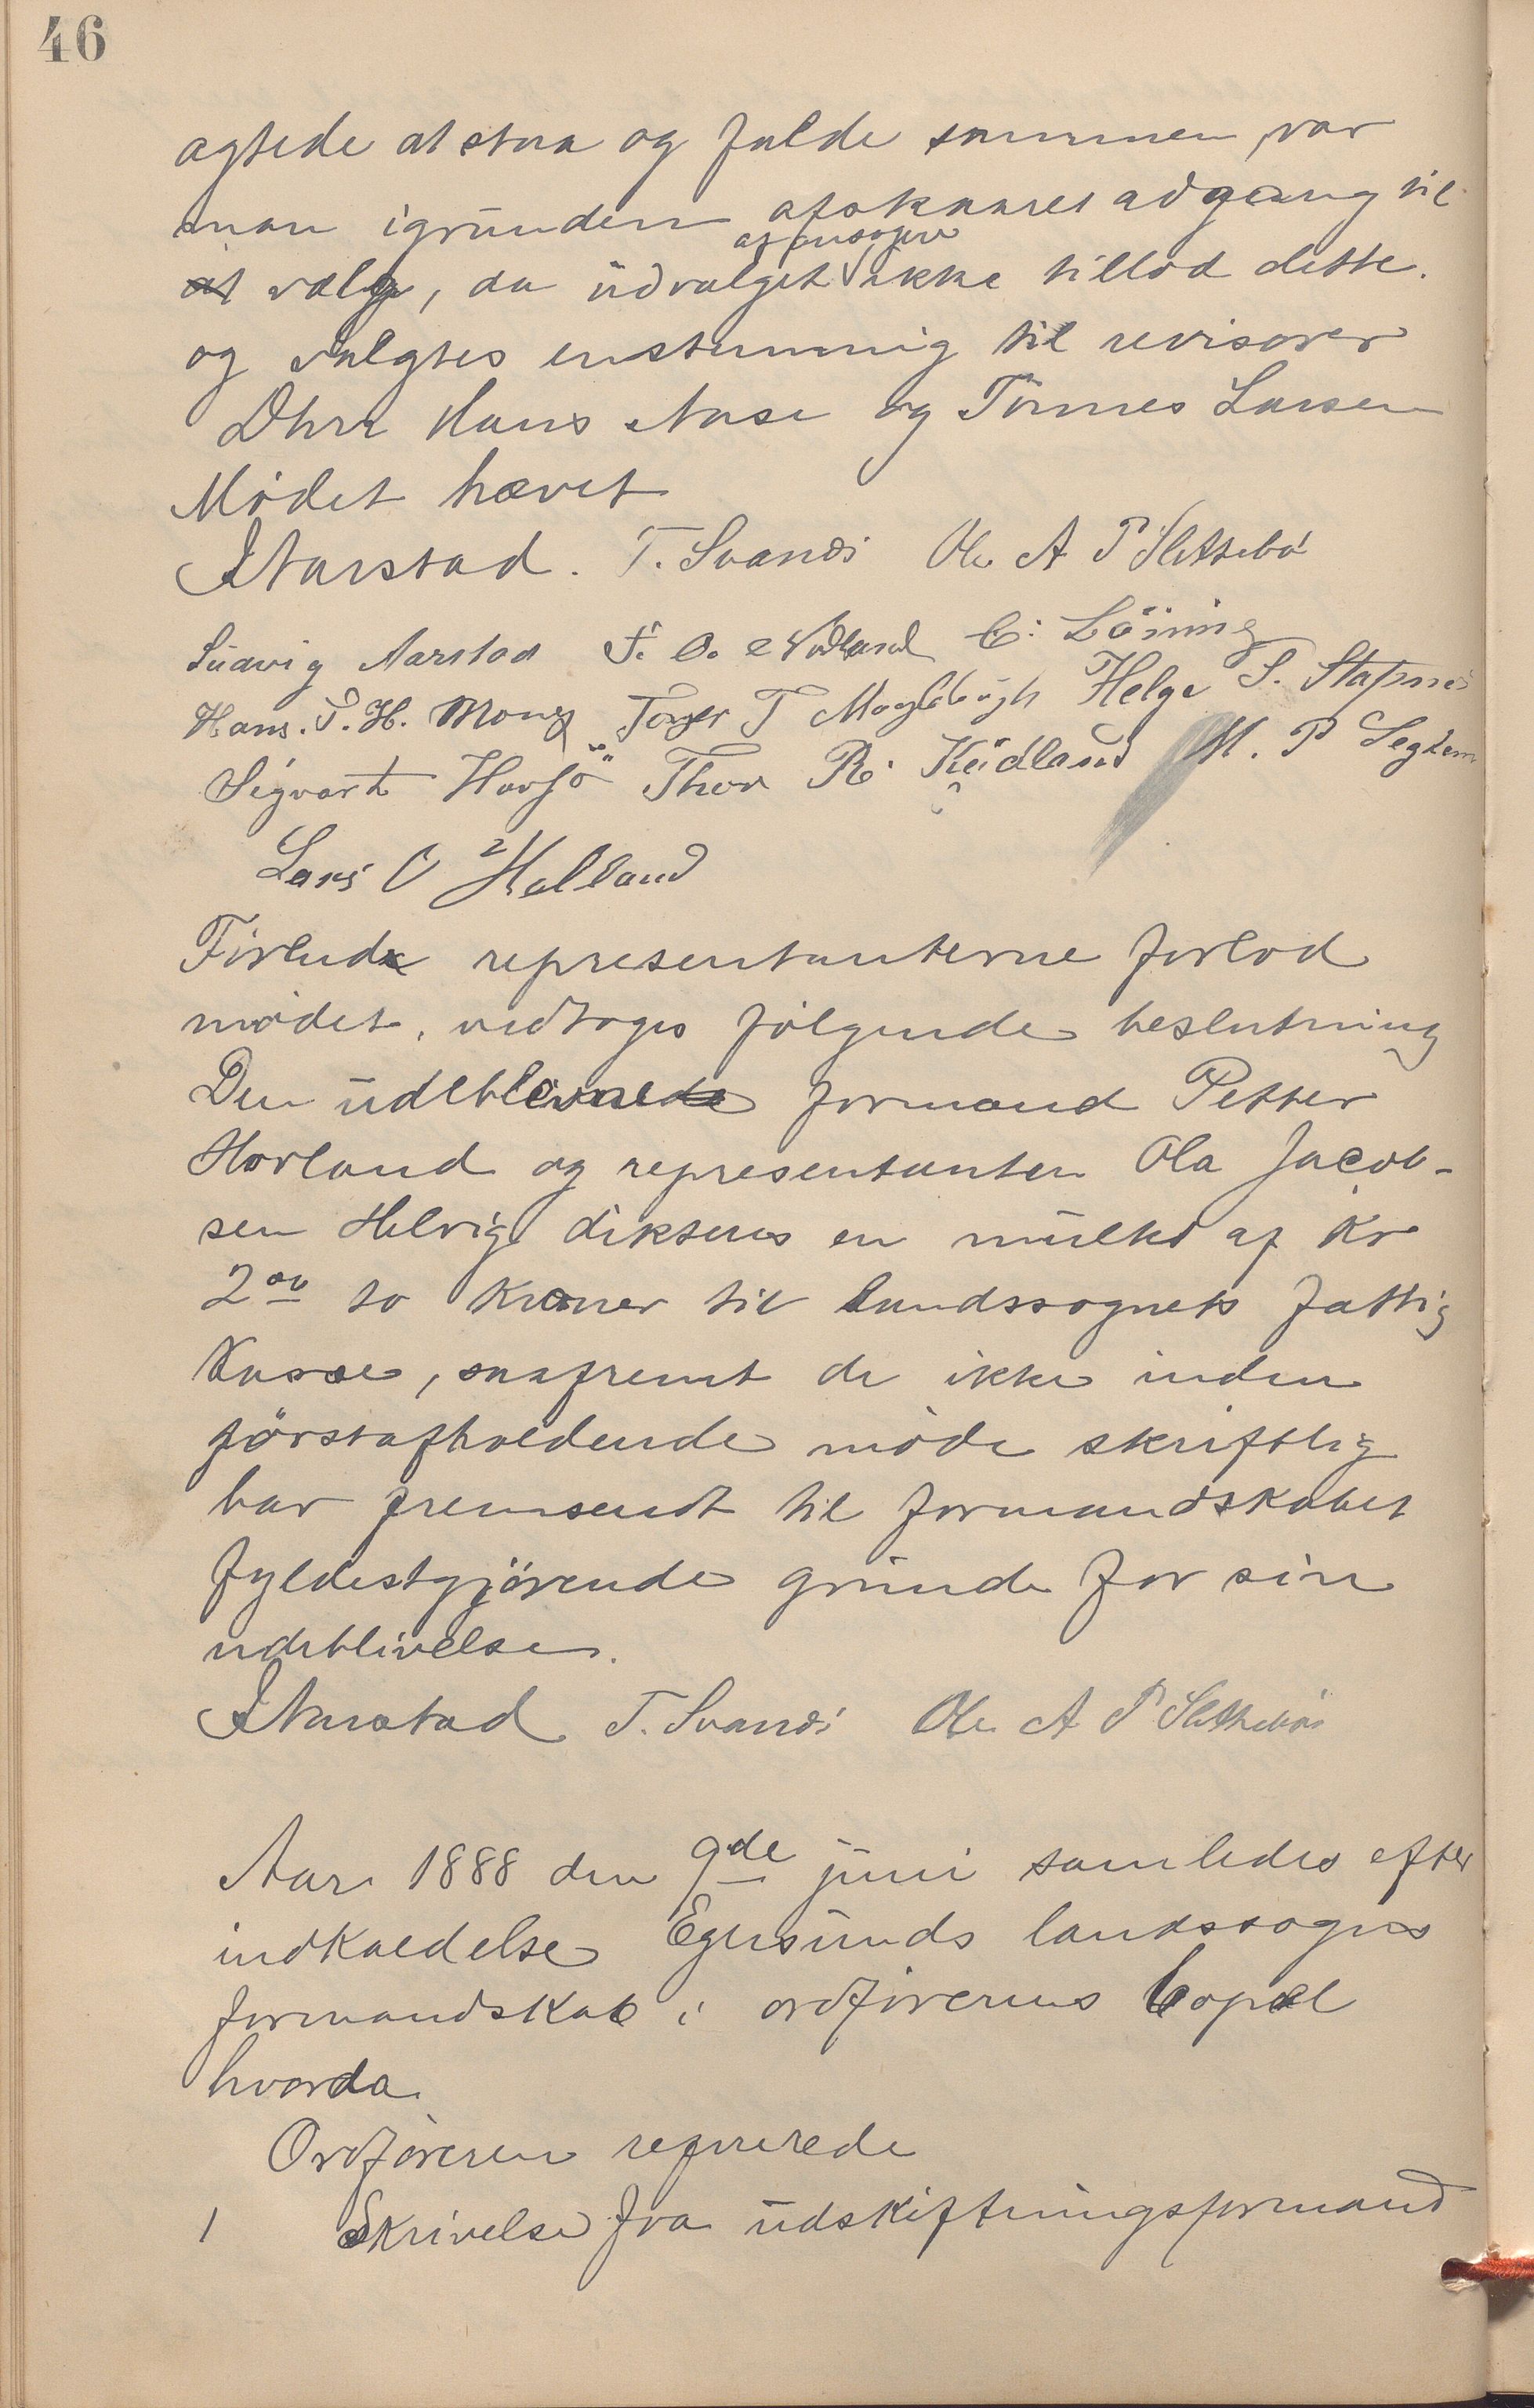 46
agtede at staa og falde sammen, var
man igrunden afskaaret adgang til
af ansøgere
at valg, da udvalget ikke tillod dette.
og valgtes enstemmig til revisorer
Dhrr Hans Aase og Tönnes Larsen
Mödet hævet
Aarstad. T. Svanæs Ole A P Slettebö
Ludvig Aarstad F. O. Nodland C. Löning
Hans. P. H. Mong Torger T Mogleb Helge S. Stapnes
Sigvart Havsö Thor R. Kådland M. P Seglem
Lars O Halland
Förend representanterne forlod
mödet, vedtoges fölgende beslutning
Den udeblevne formand Petter
Hovland og representanten Ola Jacob-
sen Helvig dikteres en mulkt af Kr
2 00 to kroner til landssognets fattig
kasse, saafremt de ikke inden
förstafholdende möde skriftlig
har fremsendt til formandskabet
fyldestgjörende grunde for sin
udeblivelse.
Aarstad T. Svanæs Ole A P Slettebö
Aar 1888 den 9de juni samledes efter
indkaldelse Egersunds landssogns
formandskab i ordförerens bopæl
hvorda
Ordföreren refererede
1 Skrivelse fra udskiftningsformand